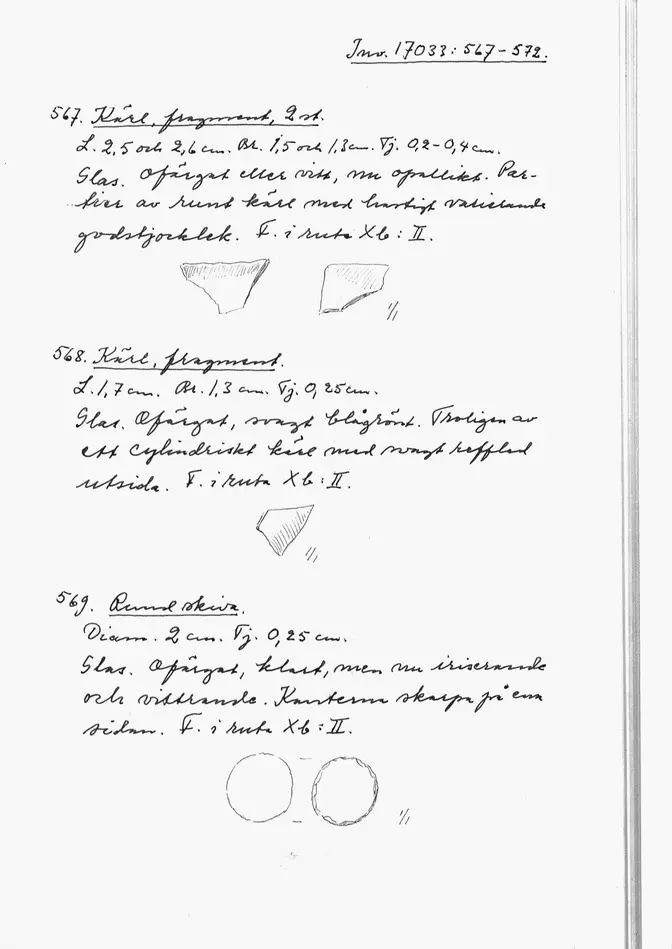 Inv. 17033: 567-572.
567. Kärl, fragment, 2 st.
L. 2,5 och 2,6 cm. Br. 1,5 och 1,3 cm. Tj. 0,2-0,4 cm.
Glas. Ofärgat eller vitt, nu opallikt. Par-
tier av runt kärl med hastigt varierande
godstjocklek. F. i ruta Xb: II.
1/1
568. Kärl, fragment.
L. 1,7 cm. Br. 1,3 cm. Tj. 0,25 cm.
Glas. Ofärgat, svagt blågrönt. Troligen av
ett cylindriskt kärl med svagt refflad
utsida. F. i ruta Xb: II.
1/1
569. Rund skiva.
Diam. 2 cm. Tj. 0,25 cm.
Glas. Ofärgat, klart, men nu iriserande
och vittrande. Kanterna skarpa på ena
sidan. F. i ruta Xb: II.
1/1